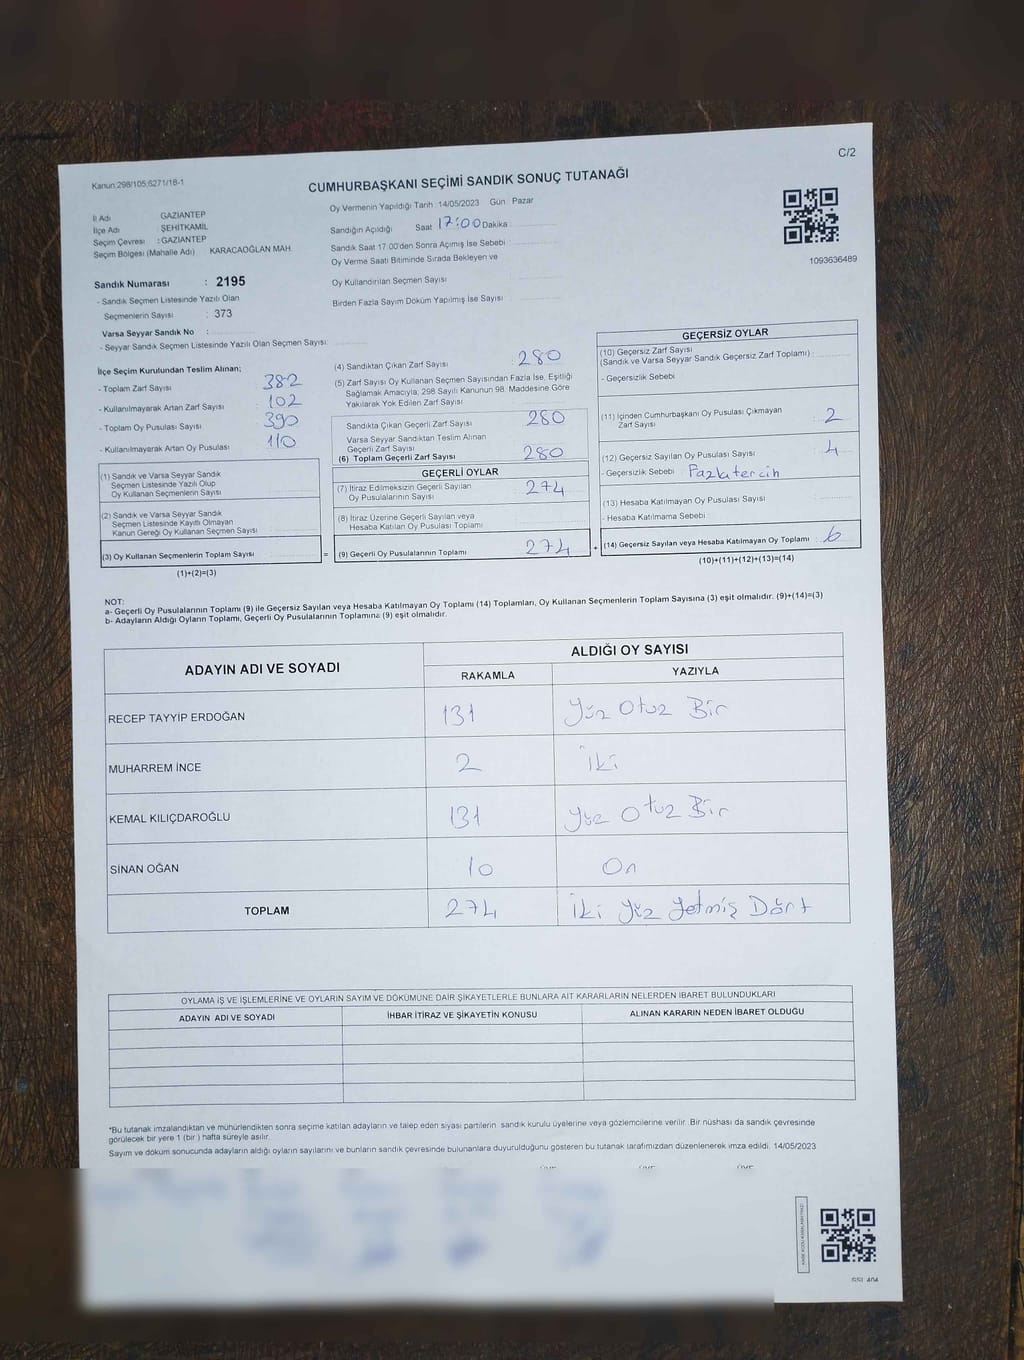 C/2
Kanun:298/105;6271/18-1
CUMHURBAŞKANI SEÇİMİ SANDIK SONUÇ TUTANAĞI
İl Adı GAZİANTEP
İlçe Adı : ŞEHİTKAMİL
Seçim Çevresi : GAZİANTEP
Seçim Bölgesi (Mahalle Adı) KARACAOĞLAN MAH.
Oy Vermenin Yapıldığı Tarih :14/05/2023 Gün : Pazar
Sandığın Açıldığı Saat 17:00 Dakika :
Sandık Saat 17:00'den Sonra Açımış İse Sebebi
Oy Verme Saati Bitiminde Sırada Bekleyen ve
Oy Kullandırılan Seçmen Sayısı
Birden Fazla Sayım Döküm Yapılmış İse Sayısı
1093636489
Sandık Numarası : 2195
- Sandık Seçmen Listesinde Yazılı Olan
Seçmenlerin Sayısı : 373
Varsa Seyyar Sandık No :
- Seyyar Sandık Seçmen Listesinde Yazılı Olan Seçmen Sayısı:
İlçe Seçim Kurulundan Teslim Alınan;
- Toplam Zarf Sayısı : 382
- Kullanılmayarak Artan Zarf Sayısı : 102
- Toplam Oy Pusulası Sayısı : 390
- Kullanılmayarak Artan Oy Pusulası : 110
(1) Sandık ve Varsa Seyyar Sandık
Seçmen Listesinde Yazılı Olup
Oy Kullanan Seçmenlerin Sayısı
(2) Sandık ve Varsa Seyyar Sandık
Seçmen Listesinde Kayıtlı Olmayan
Kanun Gereği Oy Kullanan Seçmen Sayısı
(3) Oy Kullanan Seçmenlerin Toplam Sayısı =
(1)+(2)=(3)
(4) Sandıktan Çıkan Zarf Sayısı : 280
(5) Zarf Sayısı Oy Kullanan Seçmen Sayısından Fazla İse, Eşitliği
Sağlamak Amacıyla; 298 Sayılı Kanunun 98. Maddesine Göre
Yakılarak Yok Edilen Zarf Sayısı
Sandıkta Çıkan Geçerli Zarf Sayısı 280
Varsa Seyyar Sandıktan Teslim Alınan
Geçerli Zarf Sayısı
(6) Toplam Geçerli Zarf Sayısı 280
GEÇERLİ OYLAR
(7) İtiraz Edilmeksizin Geçerli Sayılan
Oy Pusulalarının Sayısı : 274
(8) İtiraz Üzerine Geçerli Sayılan veya
Hesaba Katılan Oy Pusulası Toplamı
(9) Geçerli Oy Pusulalarının Toplamı 274 +
GEÇERSİZ OYLAR
(10) Geçersiz Zarf Sayısı
(Sandık ve Varsa Seyyar Sandık Geçersiz Zarf Toplamı) :
- Geçersizlik Sebebi
(11) İçinden Cumhurbaşkanı Oy Pusulası Çıkmayan
Zarf Sayısı : 2
(12) Geçersiz Sayılan Oy Pusulası Sayısı : 4
- Geçersizlik Sebebi : Fazla tercih
(13) Hesaba Katılmayan Oy Pusulası Sayısı
- Hesaba Katılmama Sebebi :
(14) Geçersiz Sayılan veya Hesaba Katılmayan Oy Toplamı : 6
(10)+(11)+(12)+(13)=(14)
NOT:
a- Geçerli Oy Pusulalarının Toplamı (9) ile Geçersiz Sayılan veya Hesaba Katılmayan Oy Toplamı (14) Toplamları, Oy Kullanan Seçmenlerin Toplam Sayısına (3) eşit olmalıdır. (9)+(14)=(3)
b- Adayların Aldığı Oyların Toplamı, Geçerli Oy Pusulalarının Toplamına (9) eşit olmalıdır.
ADAYIN ADI VE SOYADI ALDIĞI OY SAYISI
RAKAMLA YAZIYLA
RECEP TAYYİP ERDOĞAN 131 Yüz Otuz Bir
MUHARREM İNCE 2 İki
KEMAL KILIÇDAROĞLU 131 Yüz Otuz Bir
SİNAN OĞAN 10 On
TOPLAM 274 İki Yüz Yetmiş Dört
OYLAMA İŞ VE İŞLEMLERİNE VE OYLARIN SAYIM VE DÖKÜMÜNE DAİR ŞİKAYETLERLE BUNLARA AİT KARARLARIN NELERDEN İBARET BULUNDUKLARI
ADAYIN ADI VE SOYADI İHBAR İTİRAZ VE ŞİKAYETİN KONUSU ALINAN KARARIN NEDEN İBARET OLDUĞU
*Bu tutanak imzalandıktan ve mühürlendikten sonra seçime katılan adayların ve talep eden siyasi partilerin sandık kurulu üyelerine veya gözlemcilerine verilir. Bir nüshası da sandık çevresinde
görülecek bir yere 1 (bir) hafta süreyle asılır.
Sayım ve döküm sonucunda adayların aldığı oyların sayılarını ve bunların sandık çevresinde bulunanlara duyurulduğunu gösteren bu tutanak tarafımızdan düzenlenerek imza edildi. 14/05/2023